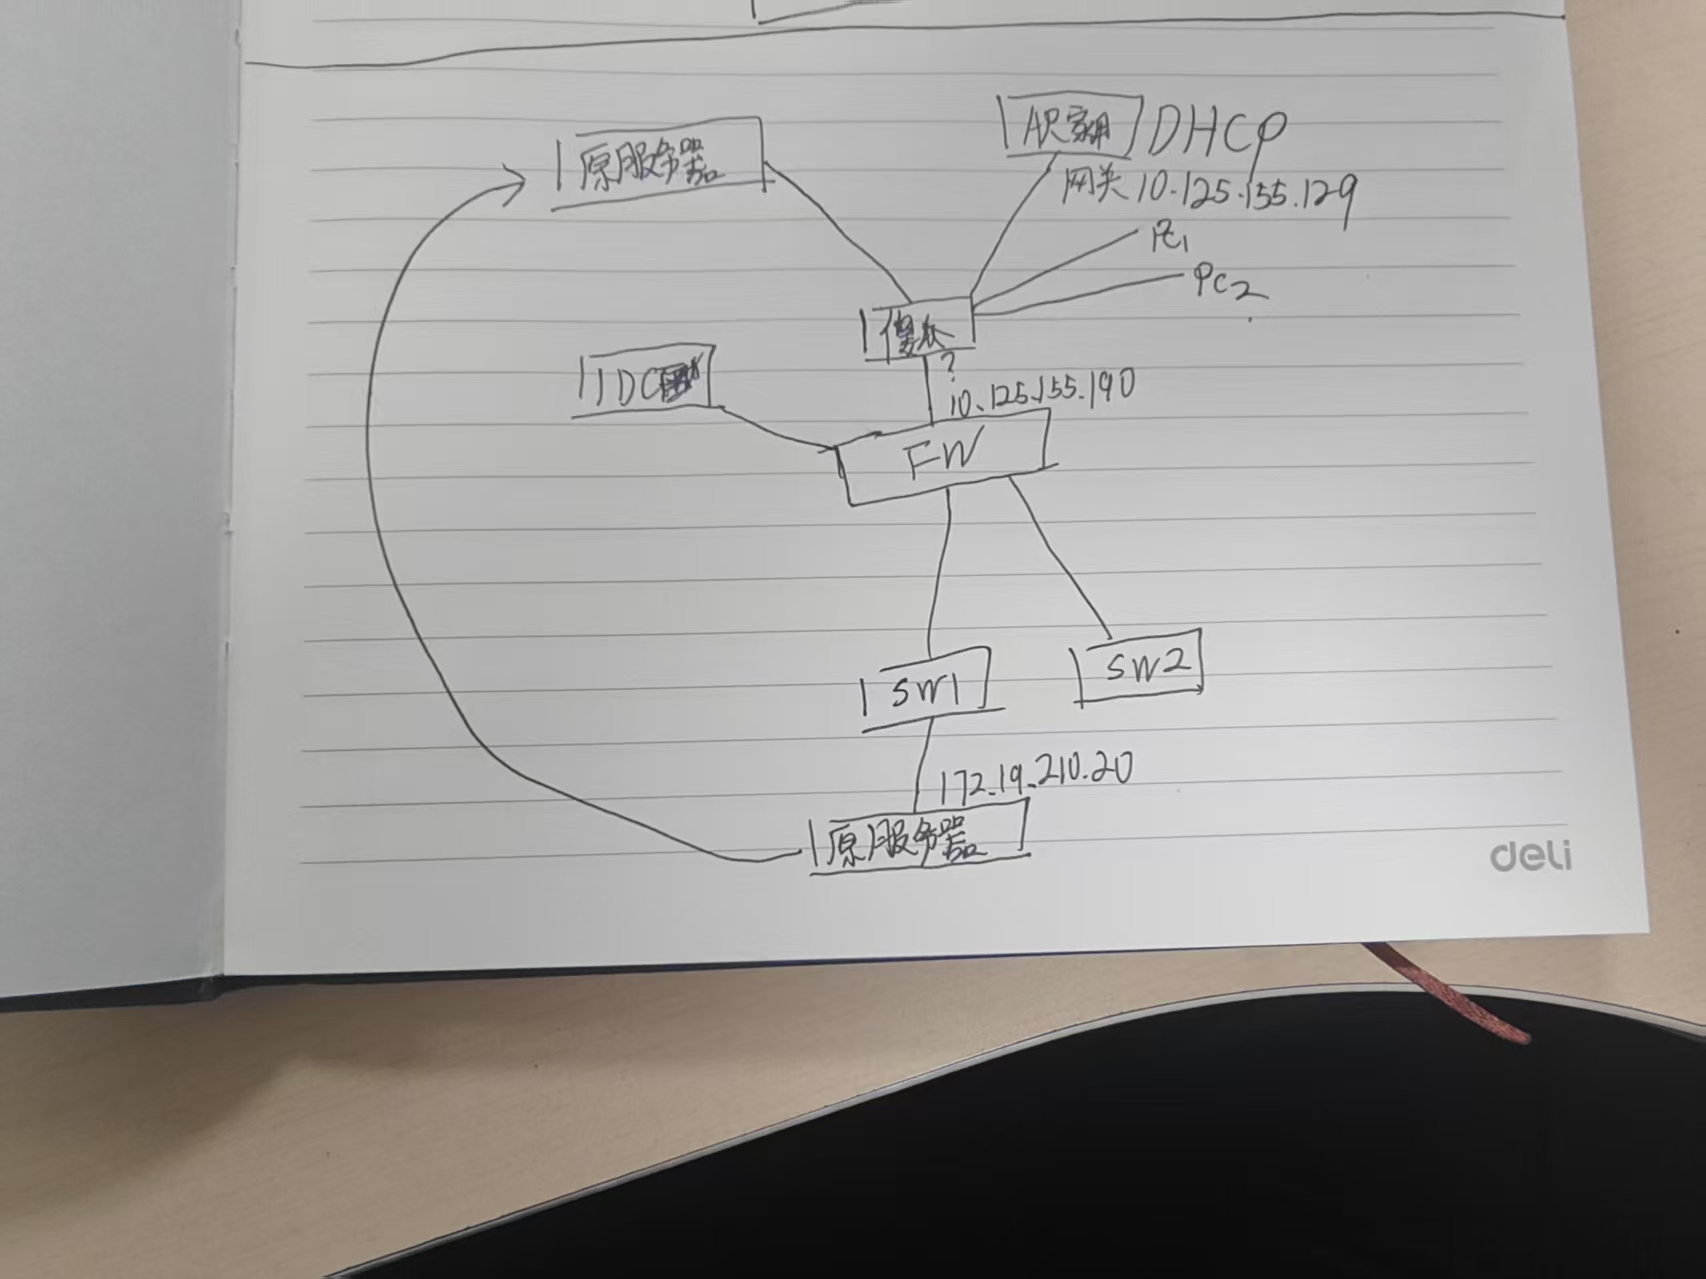 原服务器
AP家用 DHCP
网关 10.125.155.129
PC1
PC2
傻瓜
?
IDC
10.125.155.190
FW
SW1
SW2
172.19.210.20
原服务器
deli